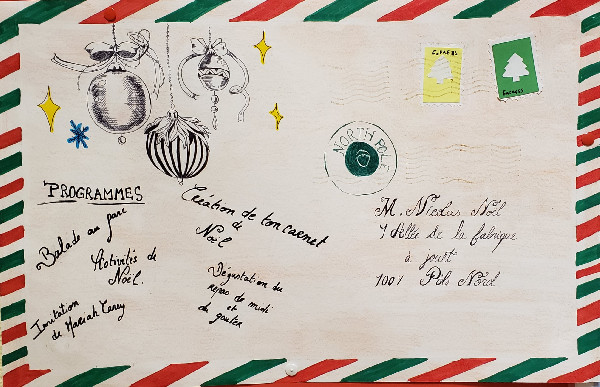 NORTH POLE
PROGRAMMES
Balade au parc
Activités de
Noël.
Invitation
de Mariah Carey
Création de ton carnet
de
Noël
Dégustation du
repas de midi
et
du gouter
M. Nicolas Noël
1 Allée de la fabrique
à jouet
1001 Pôle Nord